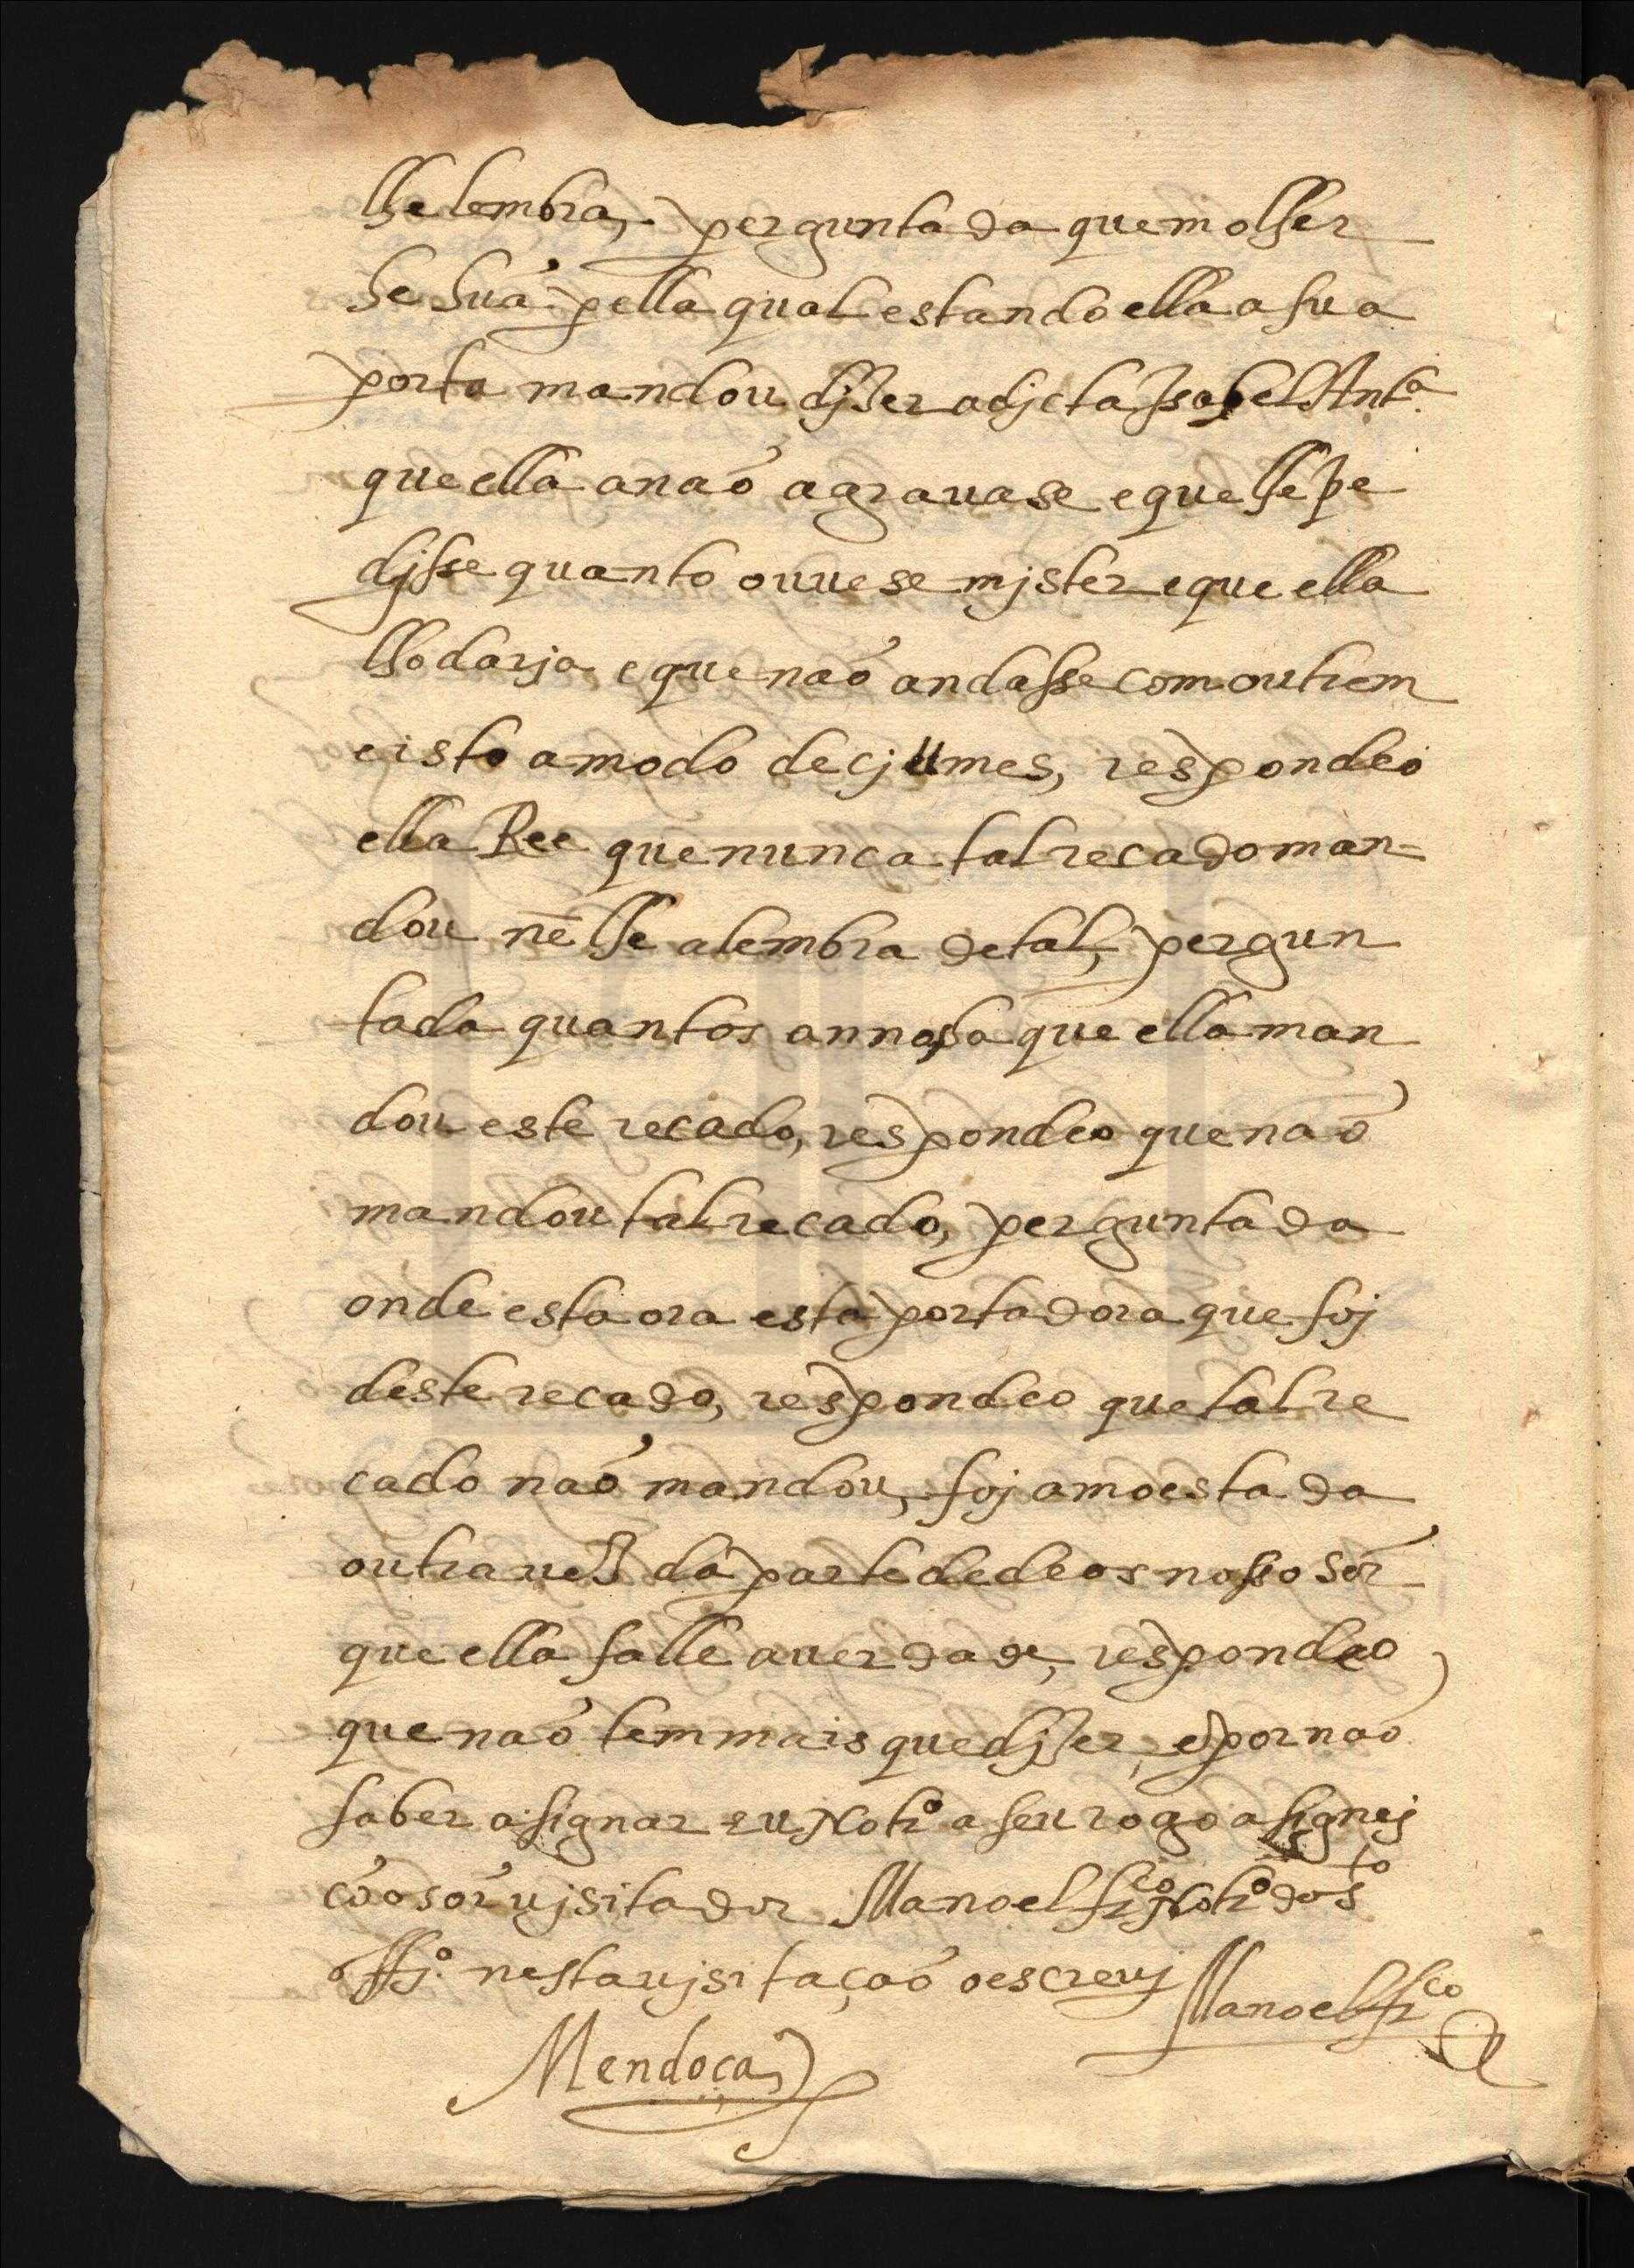 lhe lembra, perguntada que molher
he hua pella qual estando ella a sua
porta mandou djzer a djcta Isabel Ant.ª
que ella a não agravase e que lhe pe
djsse quanto ouuese mjster e que ella
lho darja e que não andasse com outrem
e isto a modo de cjumes, respondeo
ella Ree que nunca tal recado man=
dou nẽ lhe alembra de tal, pergun
tada quantos annos ha que ella man
dou este recado, respondeo que não
mandou tal recado, perguntada
onde esta ora esta portadora que foj
deste recado, respondeo que tal re
cado não mandou, foj amoestada
outra uez da parte de deos nosso sõr
que ella falle a uerdade, respondeo
que não tem mais que djzer, e por não
saber asignar eu Notr.º a seu rogo asignej
cõ o sõr ujsitador Manoel fr.co Notr.º do s.to
offj.º nesta ujsitação o escreuj Manoel fr.co
Mendoça